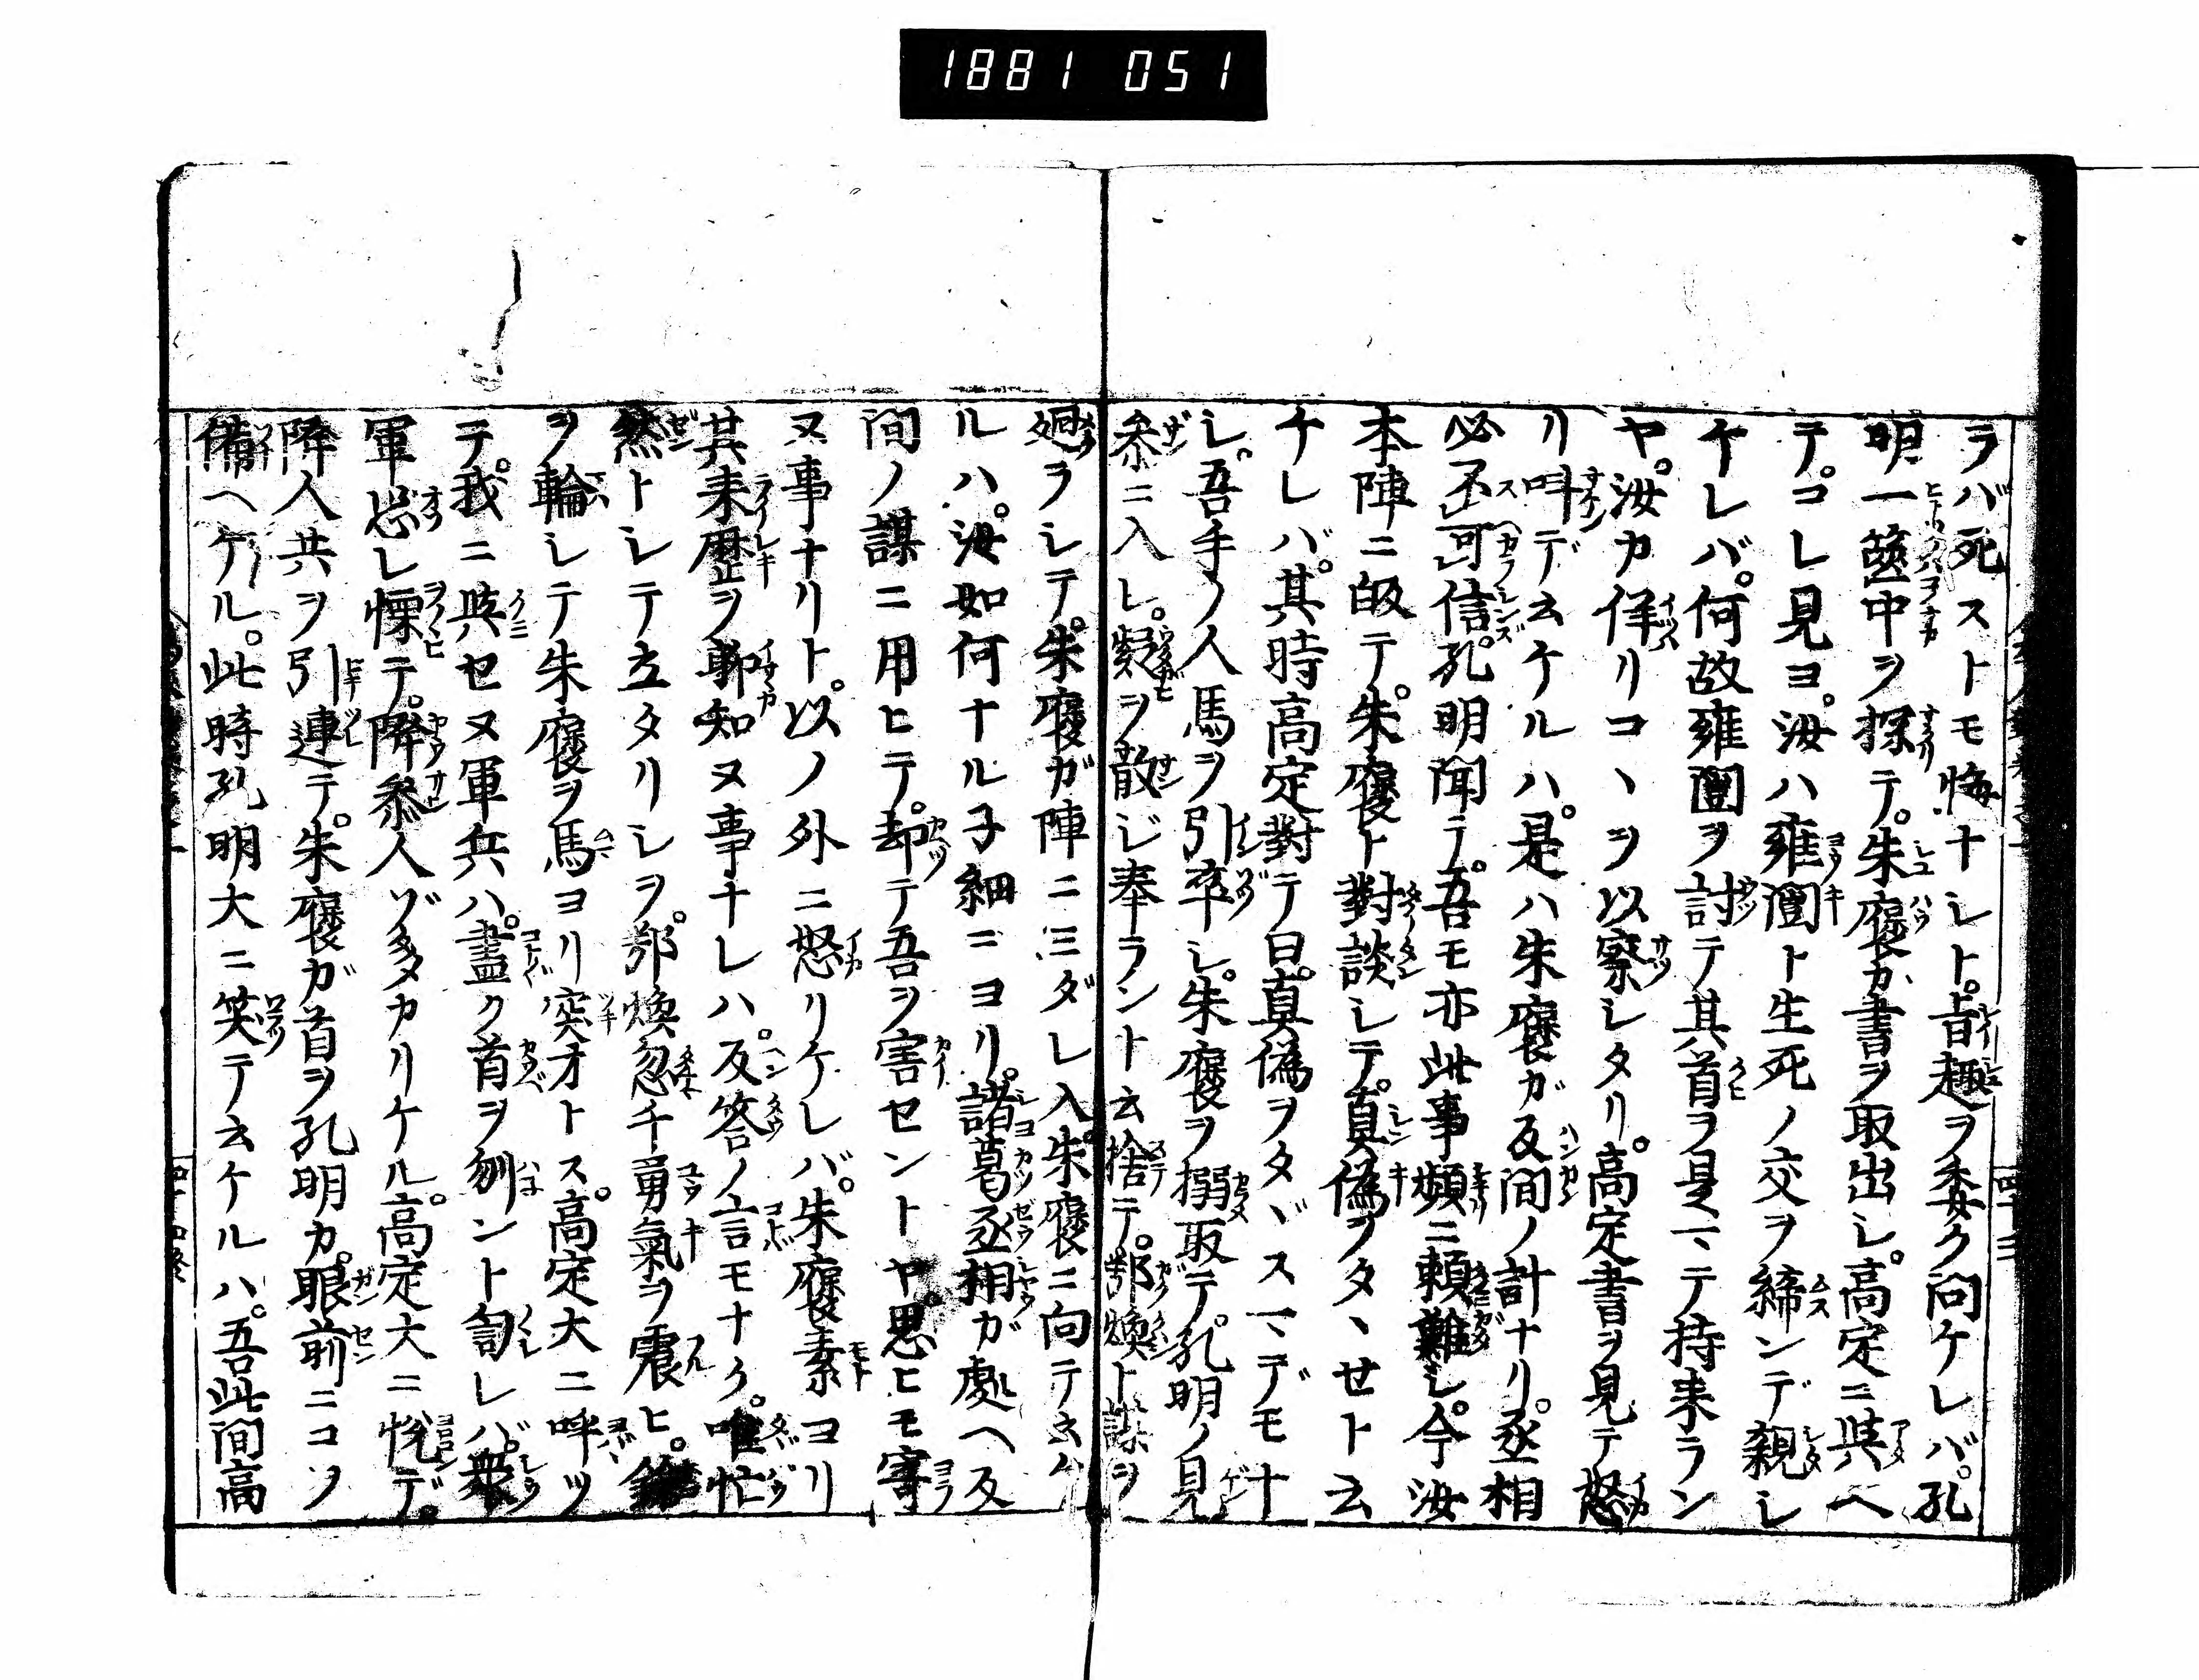 1881 051
ラバ死ストモ悔ナシト。旨趣ヲ委ク問ケレバ。孔
明一篋中ヲ探テ。朱褒カ書ヲ取出シ。高定ニ與ヘ
テ。コレ見ヨ。汝ハ雍闓ト生死ノ交ヲ締ンデ親シ
ケレバ。何故雍闓ヲ討テ其首ヲ是マテ持来ラン
ヤ。汝カ佯リコヽヲ以察シタリ。高定書ヲ見テ怒
リ叫デ云ケルハ。是ハ朱褒ガ反間ノ計ナリ。丞相
必不可信。孔明聞テ。吾モ亦此事頻ニ頼難シ。今汝
本陣ニ皈テ。朱褒ト對談シテ。真偽ヲタヽせト云
ケレバ。其時高定對テ曰。真偽ヲタヾスマデモナ
シ。吾手ノ人馬ヲ引卒シ。朱褒ヲ搦取テ。孔明ノ見
参ニ入レ。疑ヲ散ジ奉ラントム捨テ。鄂煥ト謀ヲ
廻ラシテ。朱褒ガ陣ニミダレ入。朱褒ニ向テ云ケ
ルハ。汝如何ナル子細ニヨリ。諸葛丞相ガ處ヘ反
間ノ謀ニ用ヒテ。却テ吾ヲ害セントヤ。思ヒモ寄
ヌ事ナリト。以ノ外ニ怒リケレバ。朱褒素ヨリ
其来歴ヲ聊知ヌ事ナレハ。反答ノ言モナク。唯忙
然トシテ立タリシヲ。鄂煥忽チ勇氣ヲ震ヒ。
ヲ輪シテ朱褒ヲ馬ヨリ突オトス。高定大ニ呼ツ
テ。我ニ與セヌ軍兵ハ。盡ク首ヲ刎ント訇レバ。衆
軍恐レ慄テ。降参人ゾ多カリケル。高定大ニ悦デ。
降人共ヲ引連テ。朱褒ガ首ヲ孔明カ。眼前ニコソ
備ヘケル。此時孔明大ニ笑テ云ケルハ。吾此間高